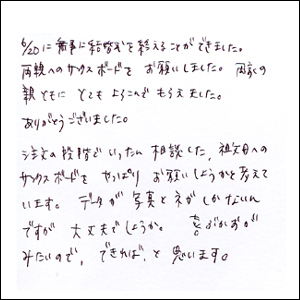 6/20に無事に結婚式を終えることができました。
両親へのサンクスボードを お願いしました。両家の
親ともに とても よろこんで もらえました。
ありがとうございました。
注文の段階でいったん 相談した、祖父母への
サンクスボードを やっぱり お願いしようかと考えて
います。データが 写真とネガ しかないん
ですが 大丈夫でしょうか。 よろこぶかおが
みたいので、できれば、と 思います。